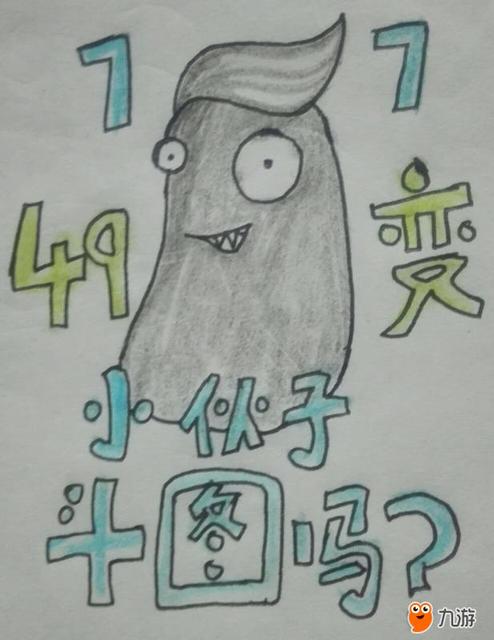 7 7
49变
小伙子
斗图吗?
九游